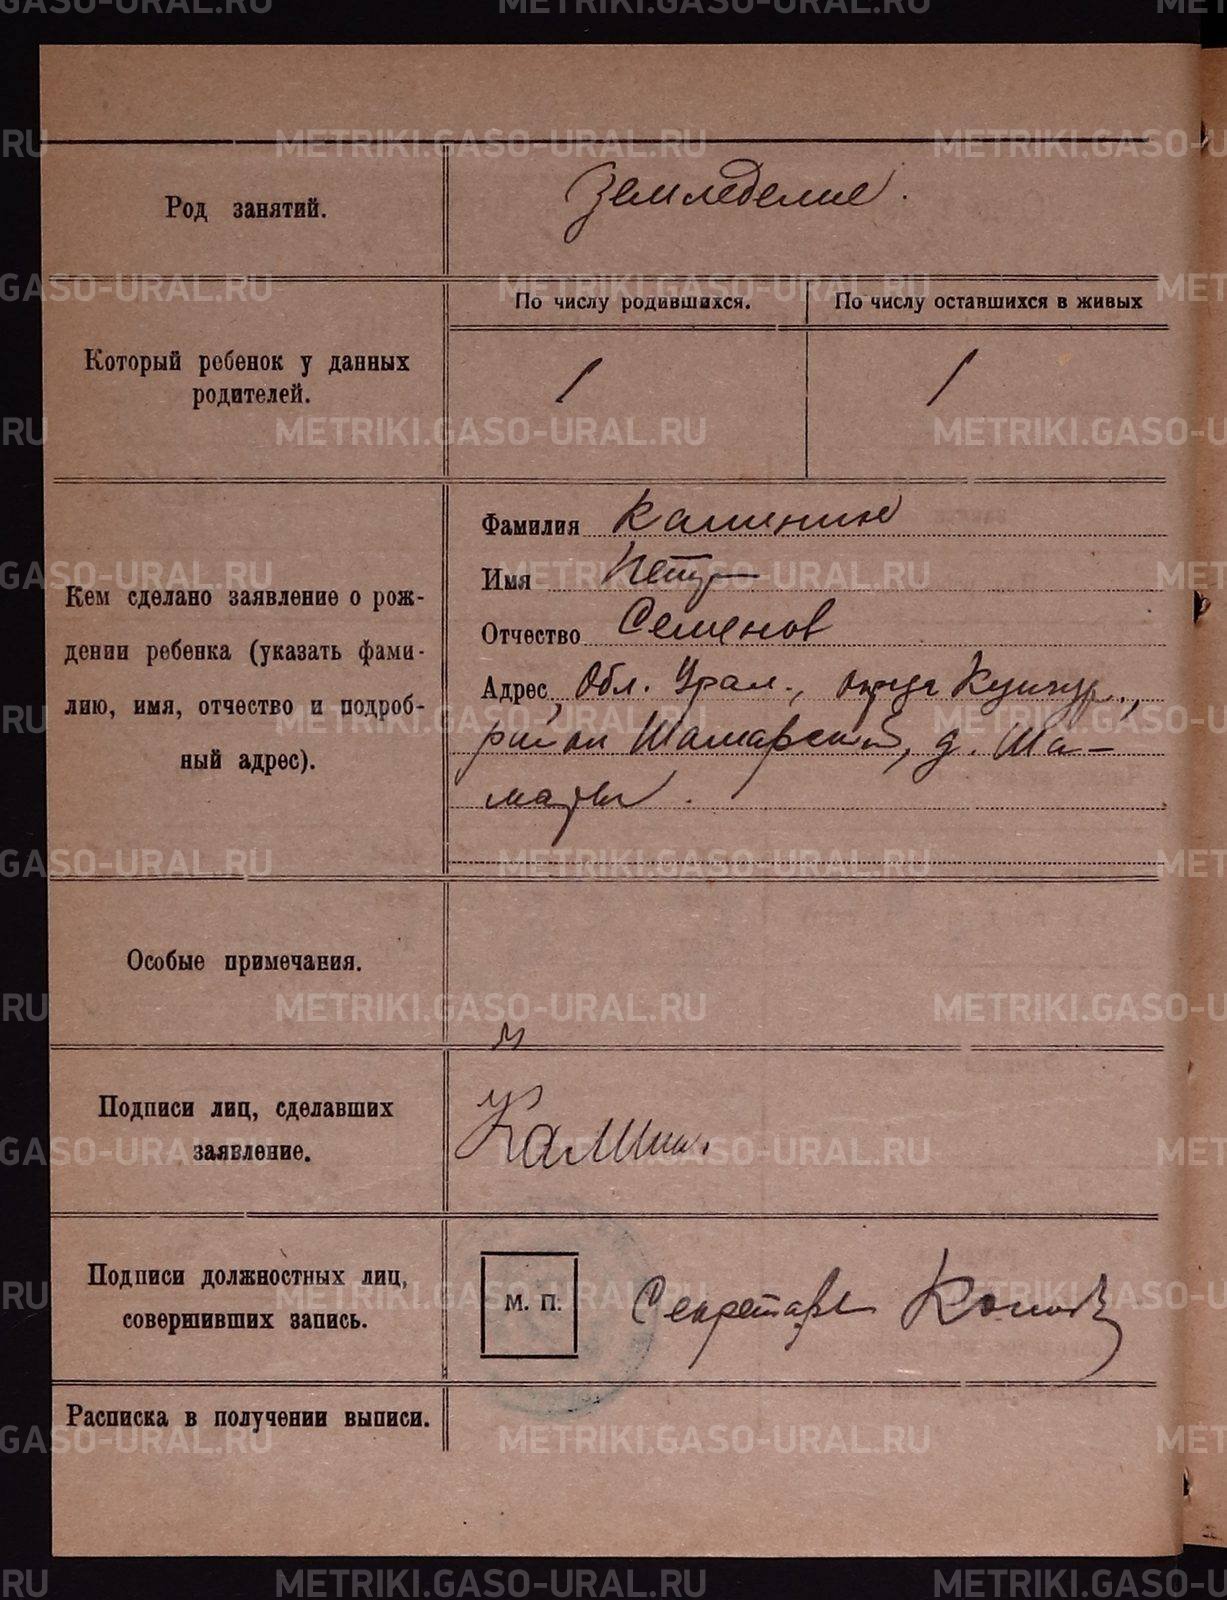 METRIKI.GASO-URAL.RU
Род занятий.
Земледелие.
Который ребенок у данных
родителей.
По числу родившихся.
По числу оставшихся в живых
1
1
Кем сделано заявление о рож-
дении ребенка (указать фами-
лию, имя, отчество и подроб-
ный адрес).
Фамилия Калинин
Имя Петр
Отчество Семенов
Адрес, Обл. Урал., округа Кунгур.,
район Шамарский, д. Ша-
мары.
Особые примечания.
Подписи лиц, сделавших
заявление.
Калинин.
Подписи должностных лиц,
совершивших запись.
М. П.
Секретарь
Расписка в получении выписи.